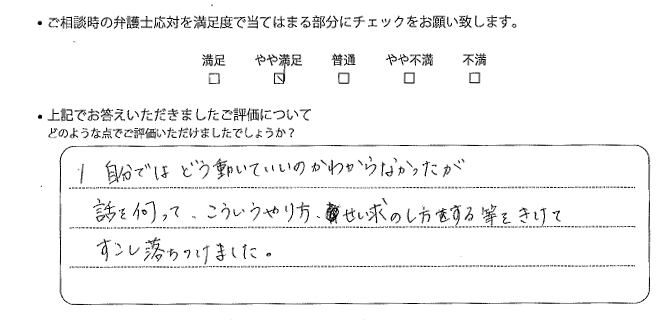 ・ご相談時の弁護士応対を満足度で当てはまる部分にチェックをお願い致します。
満足 やや満足 普通 やや不満 不満
・上記でお答えいただきましたご評価について
どのような点でご評価いただけましたでしょうか？
自分ではどう動いていいのかわからなかったが
話を伺って、こういうやり方、せい求のし方をする等をきけて
すこし落ちつけました。